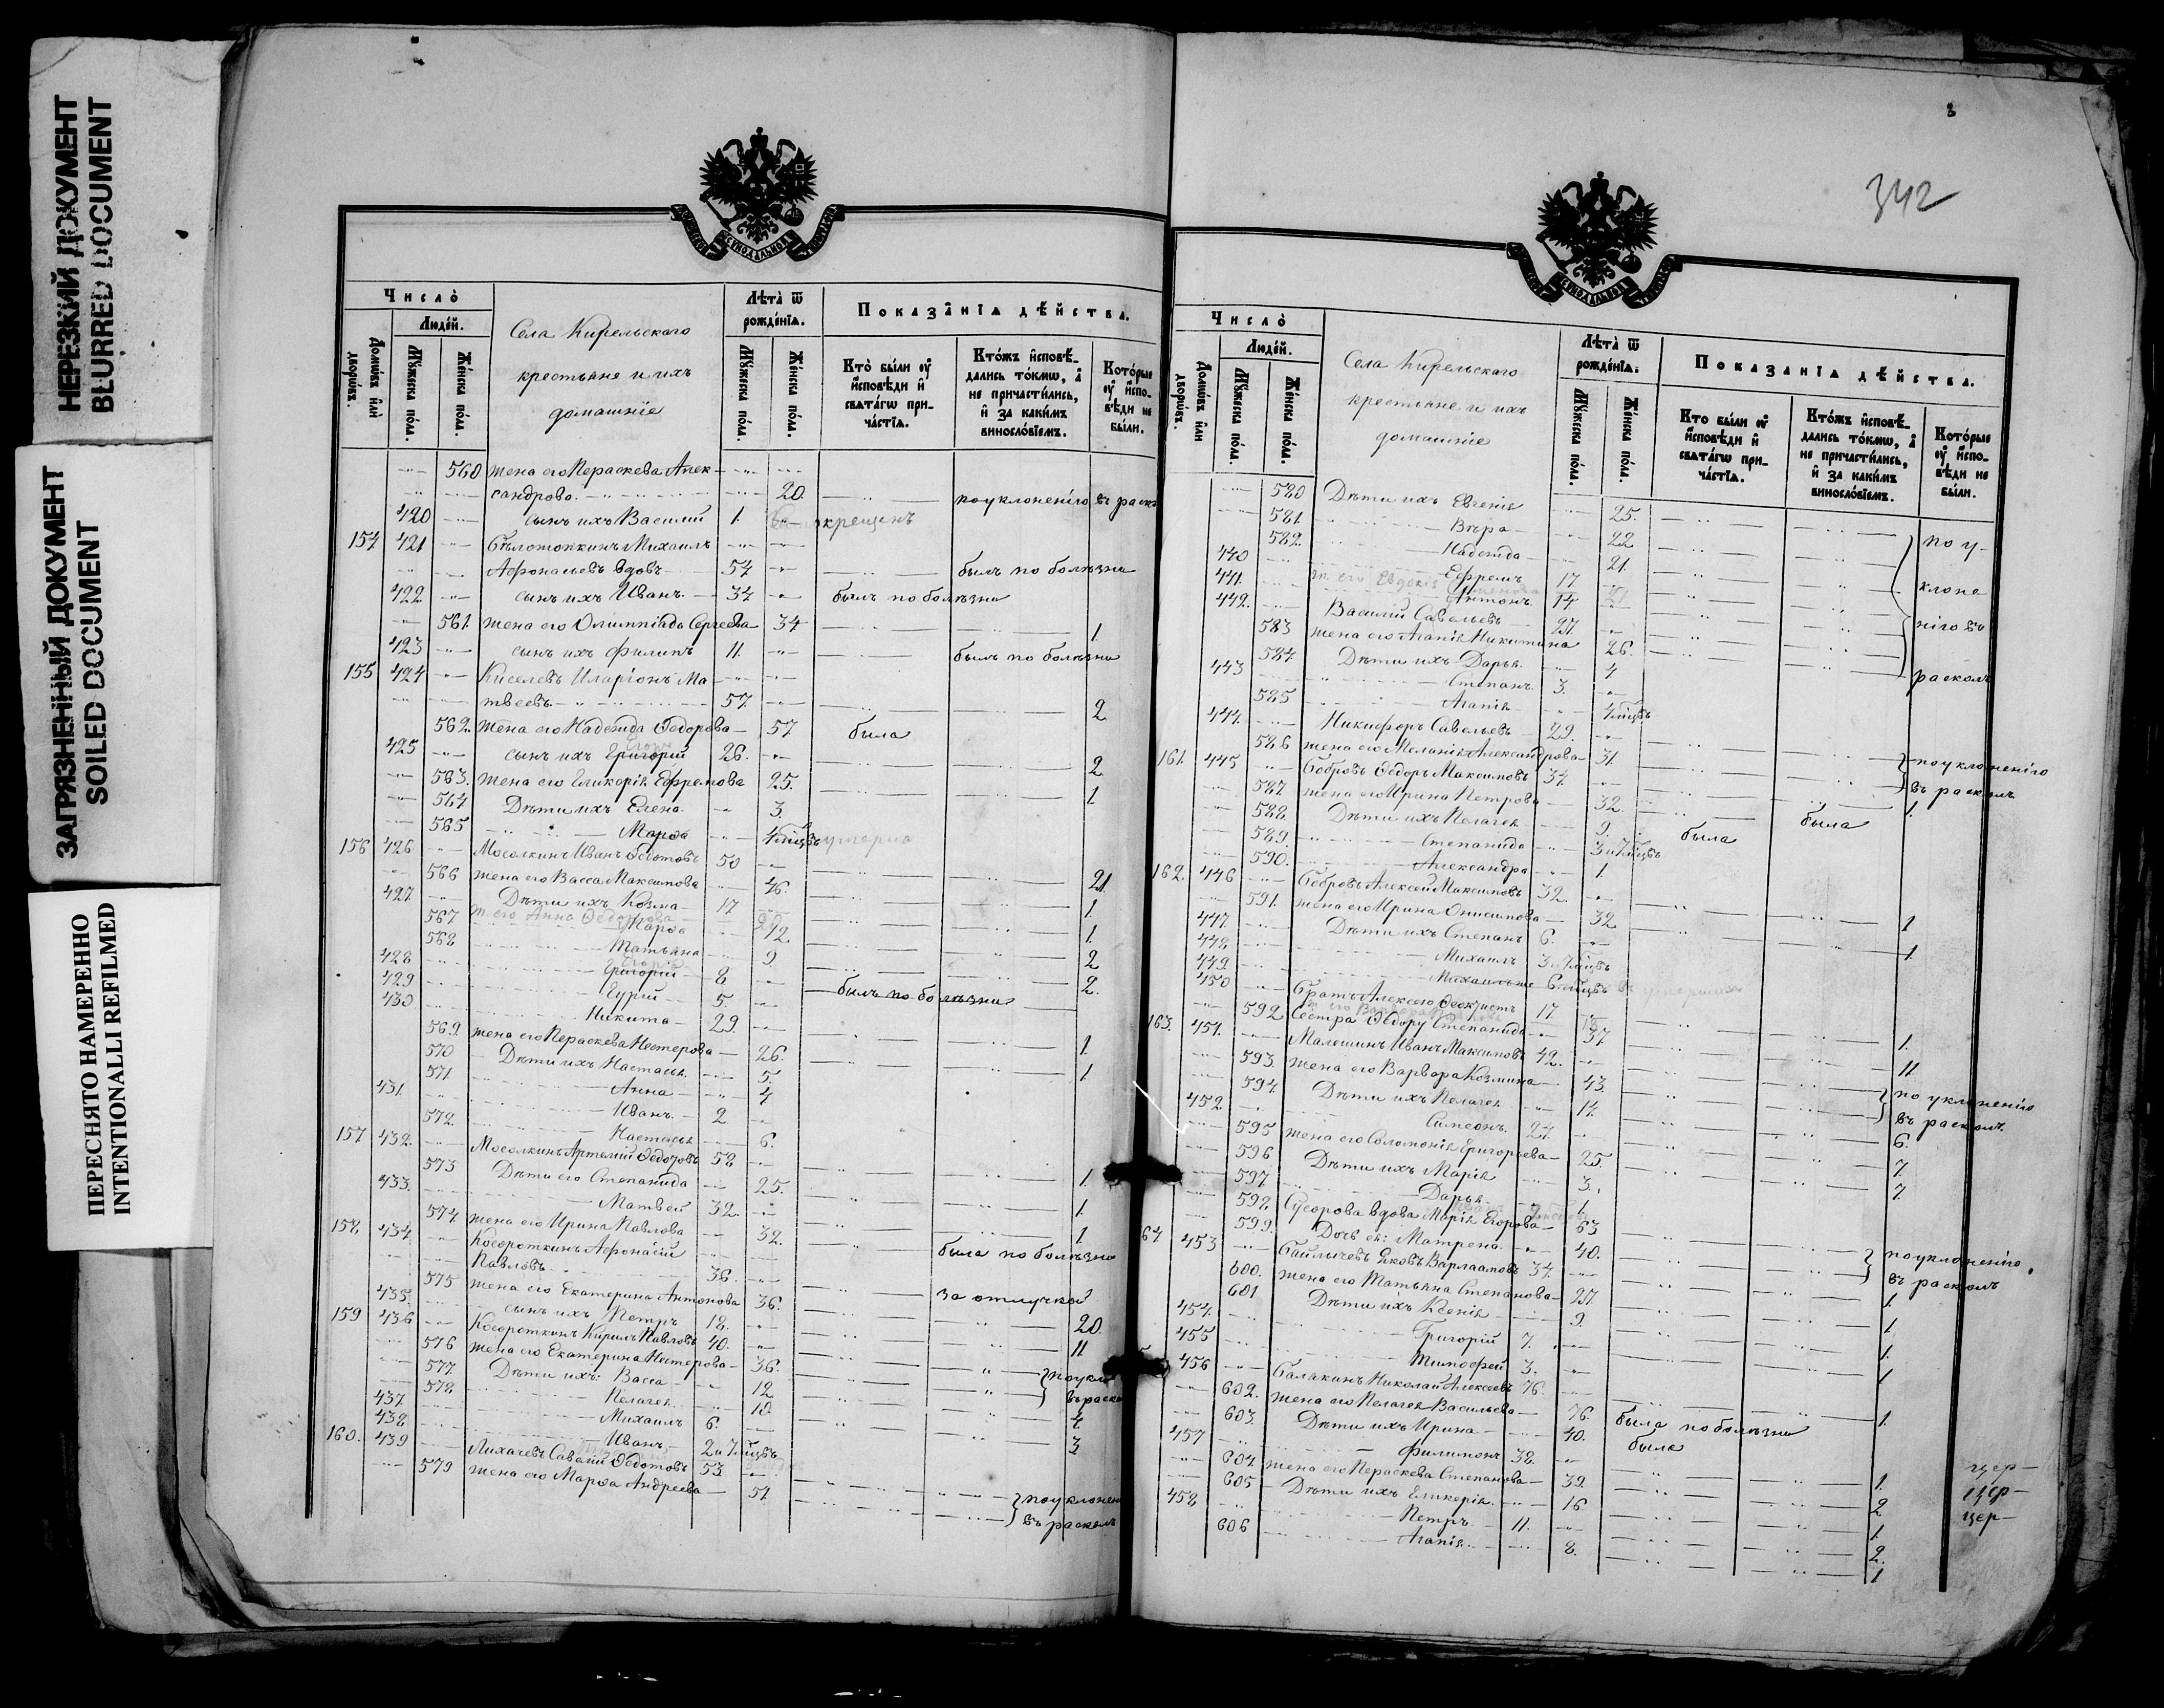 НЕРЕЗКИЙ ДОКУМЕНТ
BLURRED DOCUMENT
ЗАГРЯЗНЕННЫЙ ДОКУМЕНТ
SOILED DOCUMENT
ПЕРЕСНЯТО НАМЕРЕННО
INTENTIONALLI REFILMED
Число̀
Людей.
Домѡвъ или дворѡвъ.
Мужеска пола.
Женска пола.
Села Кирельскаго
крестьяне и ихъ
домашніе
Лѣта ѿ рожденїѧ.
Мужеска пола.
Женска пола.
Показанїѧ дѣйства.
Кто были оу исповѣди и свѧтагѡ причастїѧ.
Ктожъ исповѣдались токмѡ, а не причастились, и за какимъ винословїемъ.
Которые оу исповѣди не были.
560 жена его Параскева Алек-
сандрова 20. по уклоненію въ раско
420 сынъ ихъ Василий 1. крещенъ
154 421 Бѣлотокинъ Михаилъ
Афонасьевъ вдовъ 54 былъ по болѣзни
422 сынъ ихъ Иванъ 34 былъ по болѣзни
561. жена его Олимпіада Сергеева 34 1.
423 сынъ ихъ Филипъ 11. былъ по болѣзни
155 424 Киселевъ Иларіонъ Ма-
твеевъ 57. 2
562. жена его Надежда Ѳедорова 57 была
425 сынъ ихъ Григорій 26. 2
563. жена его Гликерія Ефремова 25. 1.
564 Дѣти ихъ Елена 3.
565 Марѳа 4 мѣцвъ умерла
156 426 Мосолкинъ Иванъ Ѳедотовъ 50 21
566 жена его Васса Максимова 46. 1.
427. Дѣти ихъ Козма 17 1.
ж. его Анна Ѳедорова
567 Марѳа 12 2
568 Татьяна 9. 2.
428 Григорій 8
429 Гурій 5. былъ по болѣзни
430 Никита 29. 1.
569. жена его Параскева Нестерова 26. 1
570 Дѣти ихъ Настасья 5.
571 Анна 4
431. Иванъ 2
572. Настасья 6.
157 432. Мосолкинъ Артемій Ѳедотовъ 58 1
573 Дѣти его Степанида 25. 1.
433. Матвей 32. 1
574 жена его Ирина Павлова 32. была по болѣзни
158. 434 Косороткинъ Афонасій
Павловъ 36. за отлучкой
575 жена его Екатерина Антонова 36. 20.
435. сынъ ихъ Петръ 18. 11
159 436 Косороткинъ Кирилъ Павловъ 40. по укло
576 жена его Екатерина Нестерова 36. въ раско
577. Дѣти ихъ: Васса 12 4
578 Пелагея 10. 3
437. Михаилъ 6.
438. Иванъ 2 и 7 мѣцвъ
160. 439 Лихачевъ Саватій Ѳедотовъ 53 по уклонен
579 жена его Марѳа Андреева 51. въ расколъ
342
Число̀
Людей.
Домѡвъ или дворѡвъ.
Мужеска пола.
Женска пола.
Села Кирельскаго
крестьяне и ихъ
домашніе
Лѣта ѿ рожденїѧ.
Мужеска пола.
Женска пола.
Показанїѧ дѣйства.
Кто были оу исповѣди и свѧтагѡ причастїѧ.
Ктожъ исповѣдались токмѡ, а не причастились, и за какимъ винословїемъ.
Которые оу исповѣди не были.
580 Дѣти ихъ Евгенія 25.
581. Вѣра 22 по у-
582. Надежда 21.
440 Ефремъ 17 клоне
ж. его Евдокія
441. Антонъ 14
442. Василій Савельевъ 27. нію въ
583 жена его Агапія Никитина 26.
584. Дѣти ихъ Дарья 4 расколъ
443 Степанъ 3.
585 Агапія 4 мѣцвъ
444. Никифоръ Савельевъ 29. по уклоненію
586 жена его Меланія Александрова 31. въ расколъ
161. 445 Бобровъ Ѳедоръ Максимовъ 34. 1.
587. жена его Ирина Петрова 32. была
588. Дѣти ихъ Пелагея 9. была
589. Степанида 3 и 7 мѣцвъ
590. Александра 1.
162. 446 Бобровъ Алексей Максимовъ 32. 1
591. жена его Ирина Онисимова 32 1.
447. Дѣти ихъ Степанъ 6.
448. Михаилъ 3 и 4 мѣцвъ
449. 6 мѣцвъ
450 Братъ Алексею Ѳеоктистъ 17 1.
592 Сестра Ѳедору Степанида 37 11
163. 451. Малешинъ Иванъ Максимовъ 42. по уклоненію
593. жена его Варвара Козмина 43. въ расколъ
594. Дѣти ихъ Пелагея 14. 6.
452 Симеонъ. 27. 7.
595 жена его Соломонія Григорьева 25. 7.
596 Дѣти ихъ Марія 3.
597 Дарья 1.
598. Суворова вдова Марія Егорова 63 по уклоненію
599. Дочь ея: Матрена 40. въ расколъ
64 453 Байличевъ Яковъ Варлаамовъ 34. 1.
600. жена его Татьяна Степанова 27. 1
601 Дѣти ихъ Ксенія 9. 1.
454. Григорій 7. 1
455 Тимофей 3.
456 Балакинъ Николай Алексеевъ 76. 1.
602. жена его Пелагея Васильева 76. была по болѣзни
603. Дѣти ихъ Ирина 40. была
457 Филимонъ 38. 1. цер-
604. жена его Параскева Степанова 39. 2 цер-
605 Дѣти ихъ Гликерія 16 1 цер-
458 Петръ 11. 2.
606 Агапія 8. 1